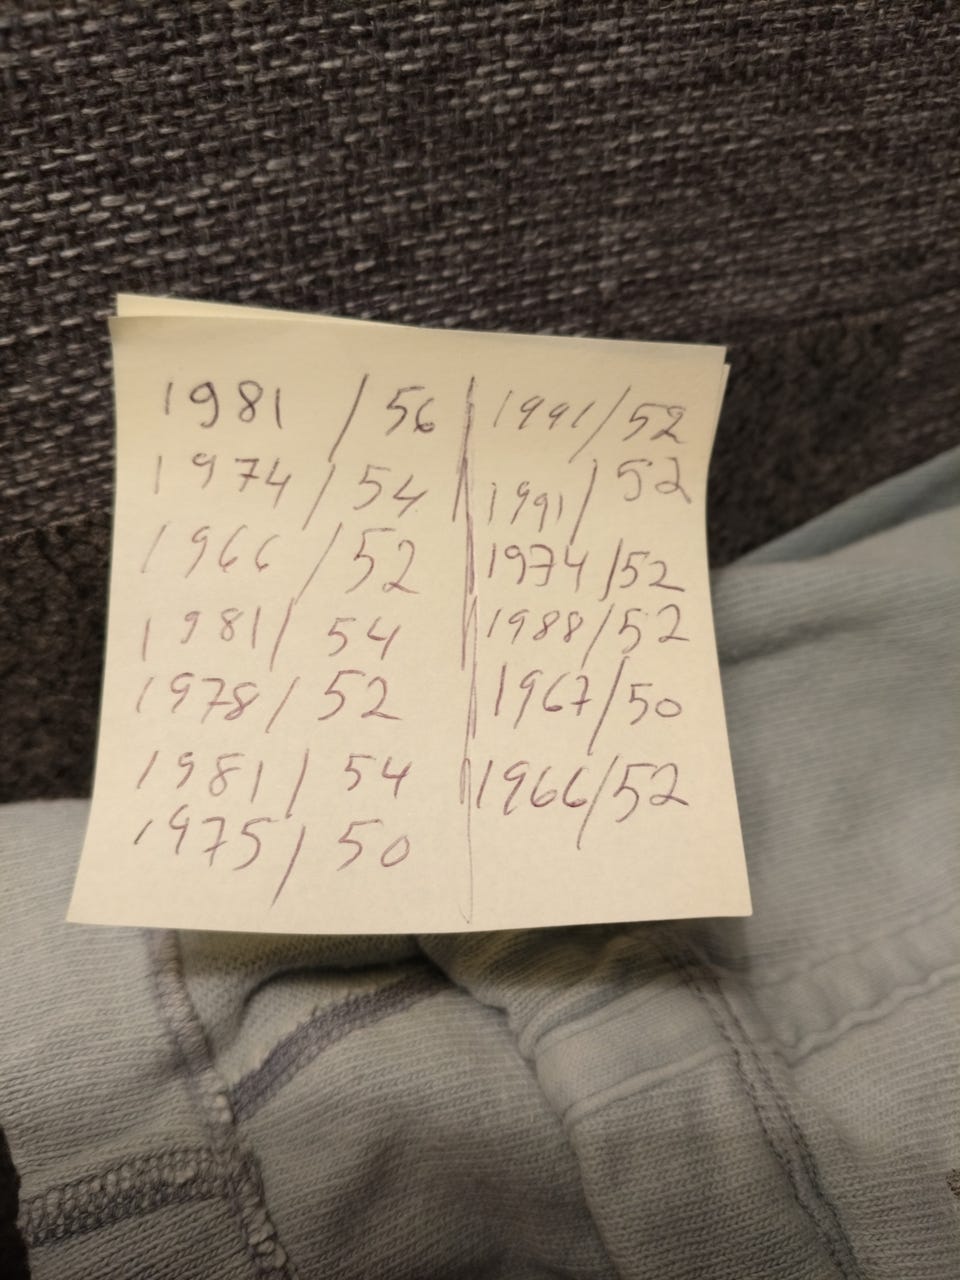 1981 / 56
1974 / 54
1966 / 52
1981 / 54
1978 / 52
1981 / 54
1975 / 50
1991/52
1991/52
1974/52
1988/52
1967/50
1966/52